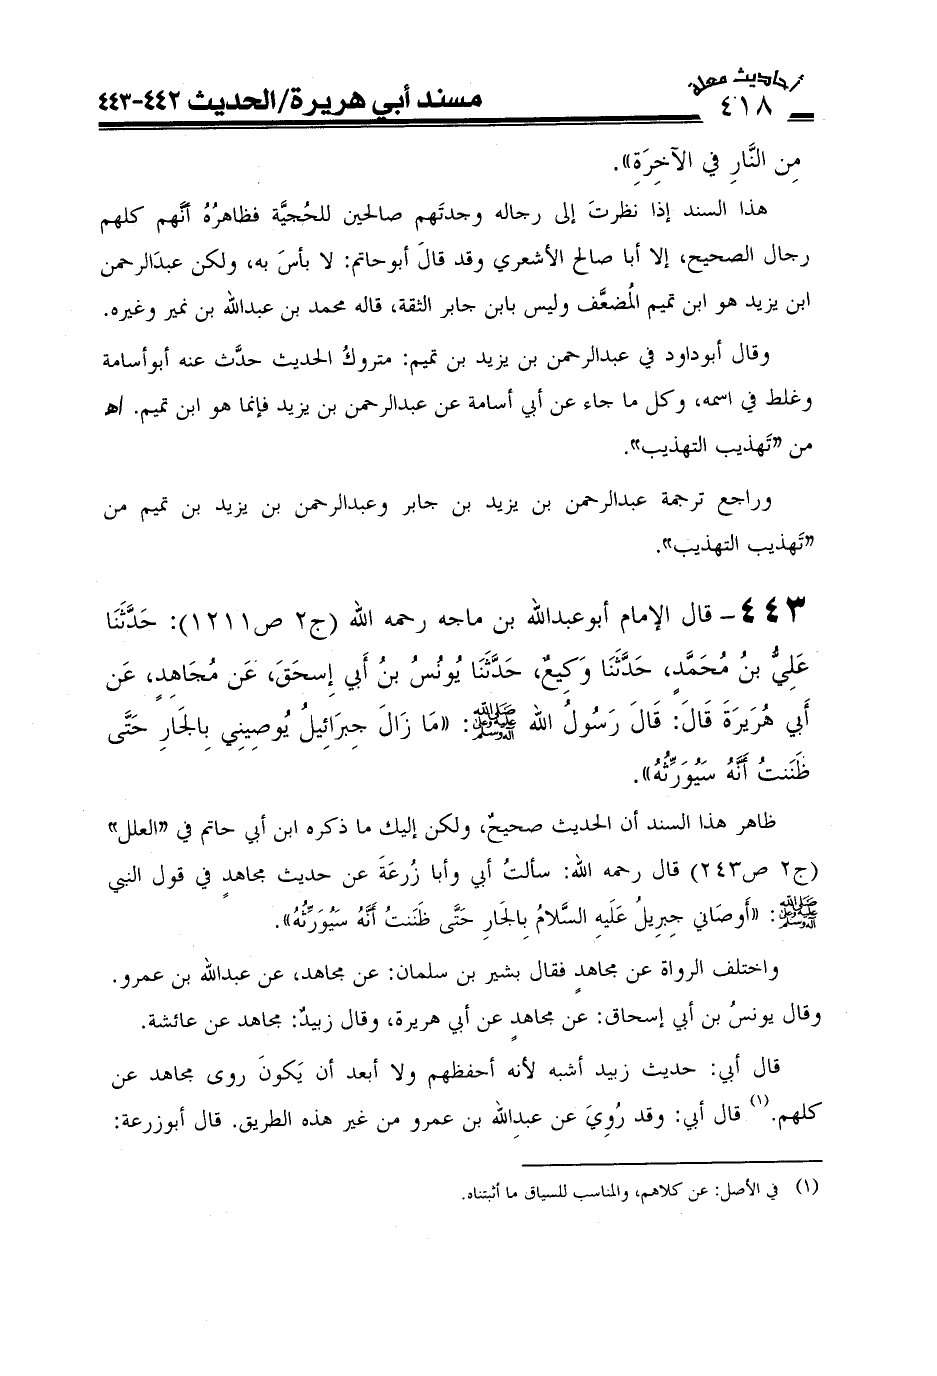 أحاديث معلة
٤١٨
مسند أبي هريرة/الحديث ٤٤٢-٤٤٣
مِن النَّارِ فِي الآخِرَةِ».
هذا السند إذا نظرتَ إلى رجاله وجدتَهم صالحين للحُجيَّة فظاهرُهُ أنَّهم كلهم
رجال الصحيح، إلا أبا صالح الأشعري وقد قالَ أبوحاتم: لا بأسَ به، ولكن عبدَالرحمن
ابن يزيد هو ابن تميم المُضعَّف وليس بابن جابر الثقة، قاله محمد بن عبدالله بن نمير وغيره.
وقال أبوداود في عبدالرحمن بن يزيد بن تميم: متروكُ الحديث حدَّث عنه أبوأسامة
وغلط في اسمه، وكل ما جاء عن أبي أسامة عن عبدالرحمن بن يزيد فإنما هو ابن تميم. اﻫ
من «تَهذيب التهذيب».
وراجع ترجمة عبدالرحمن بن يزيد بن جابر وعبدالرحمن بن يزيد بن تميم من
«تَهذيب التهذيب».
٤٤٣- قال الإمام أبوعبدالله بن ماجه رحمه الله (ج٢ ص١٢١١): حَدَّثَنَا
عَلِيُّ بنُ مُحَمَّدٍ، حَدَّثَنَا وَكِيعٌ، حَدَّثَنَا يُونُسُ بنُ أَبِي إِسحَقَ، عَن مُجَاهِدٍ، عَن
أَبِي هُرَيرَةَ قَالَ: قَالَ رَسُولُ الله ﷺ: «مَا زَالَ جِبرَائِيلُ يُوصِينِي بِالجَارِ حَتَّى
ظَنَنتُ أَنَّهُ سَيُوَرِّثُهُ».
ظاهر هذا السند أن الحديث صحيحٌ، ولكن إليك ما ذكره ابن أبي حاتم في «العلل»
(ج٢ ص٢٤٣) قال رحمه الله: سألتُ أبي وأبا زُرعَةَ عن حديث مجاهدٍ في قول النبي
ﷺ: «أَوصَانِي جِبرِيلُ عَلَيهِ السَّلامُ بِالجَارِ حَتَّى ظَنَنتُ أَنَّهُ سَيُوَرِّثُهُ».
واختلف الرواة عن مجاهدٍ فقال بشير بن سلمان: عن مجاهد، عن عبدالله بن عمرو.
وقال يونسُ بن أبي إسحاق: عن مجاهدٍ عن أبي هريرة، وقال زبيدٌ: مجاهد عن عائشة.
قال أبي: حديث زبيد أشبه لأنه أحفظهم ولا أبعد أن يَكونَ روى مجاهد عن
كلهم.(١) قال أبي: وقد رُوِيَ عن عبدِالله بن عمرو من غير هذه الطريق. قال أبوزرعة:
(١) في الأصل: عن كلاهم، والمناسب للسياق ما أثبتناه.